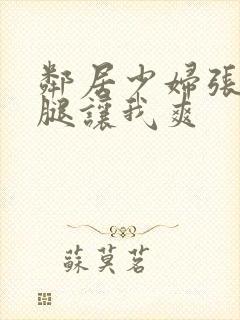 鄰居少婦張
腿讓我爽
蘇莫茗